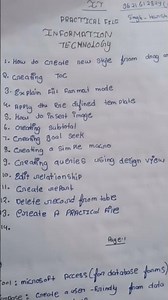 IT
PRACTICAL FILE
INFORMATION
TECHNOLOGY
1. How to create new style from drag a
2. Creating TOC
3. Explain fill format mode
4. Apply the pre defined template
5. How to insert image
6. Creating subtotal
7. Creating goal seek
8. Creating a simple macro
9. Creating queries using design view
10. Edit relationship
11. Create report
12. Delete record from table
13. Create A PRACTICAL File
14.
Page:1
Tool: microsoft access (for database forms)
: create a user-friendly from data